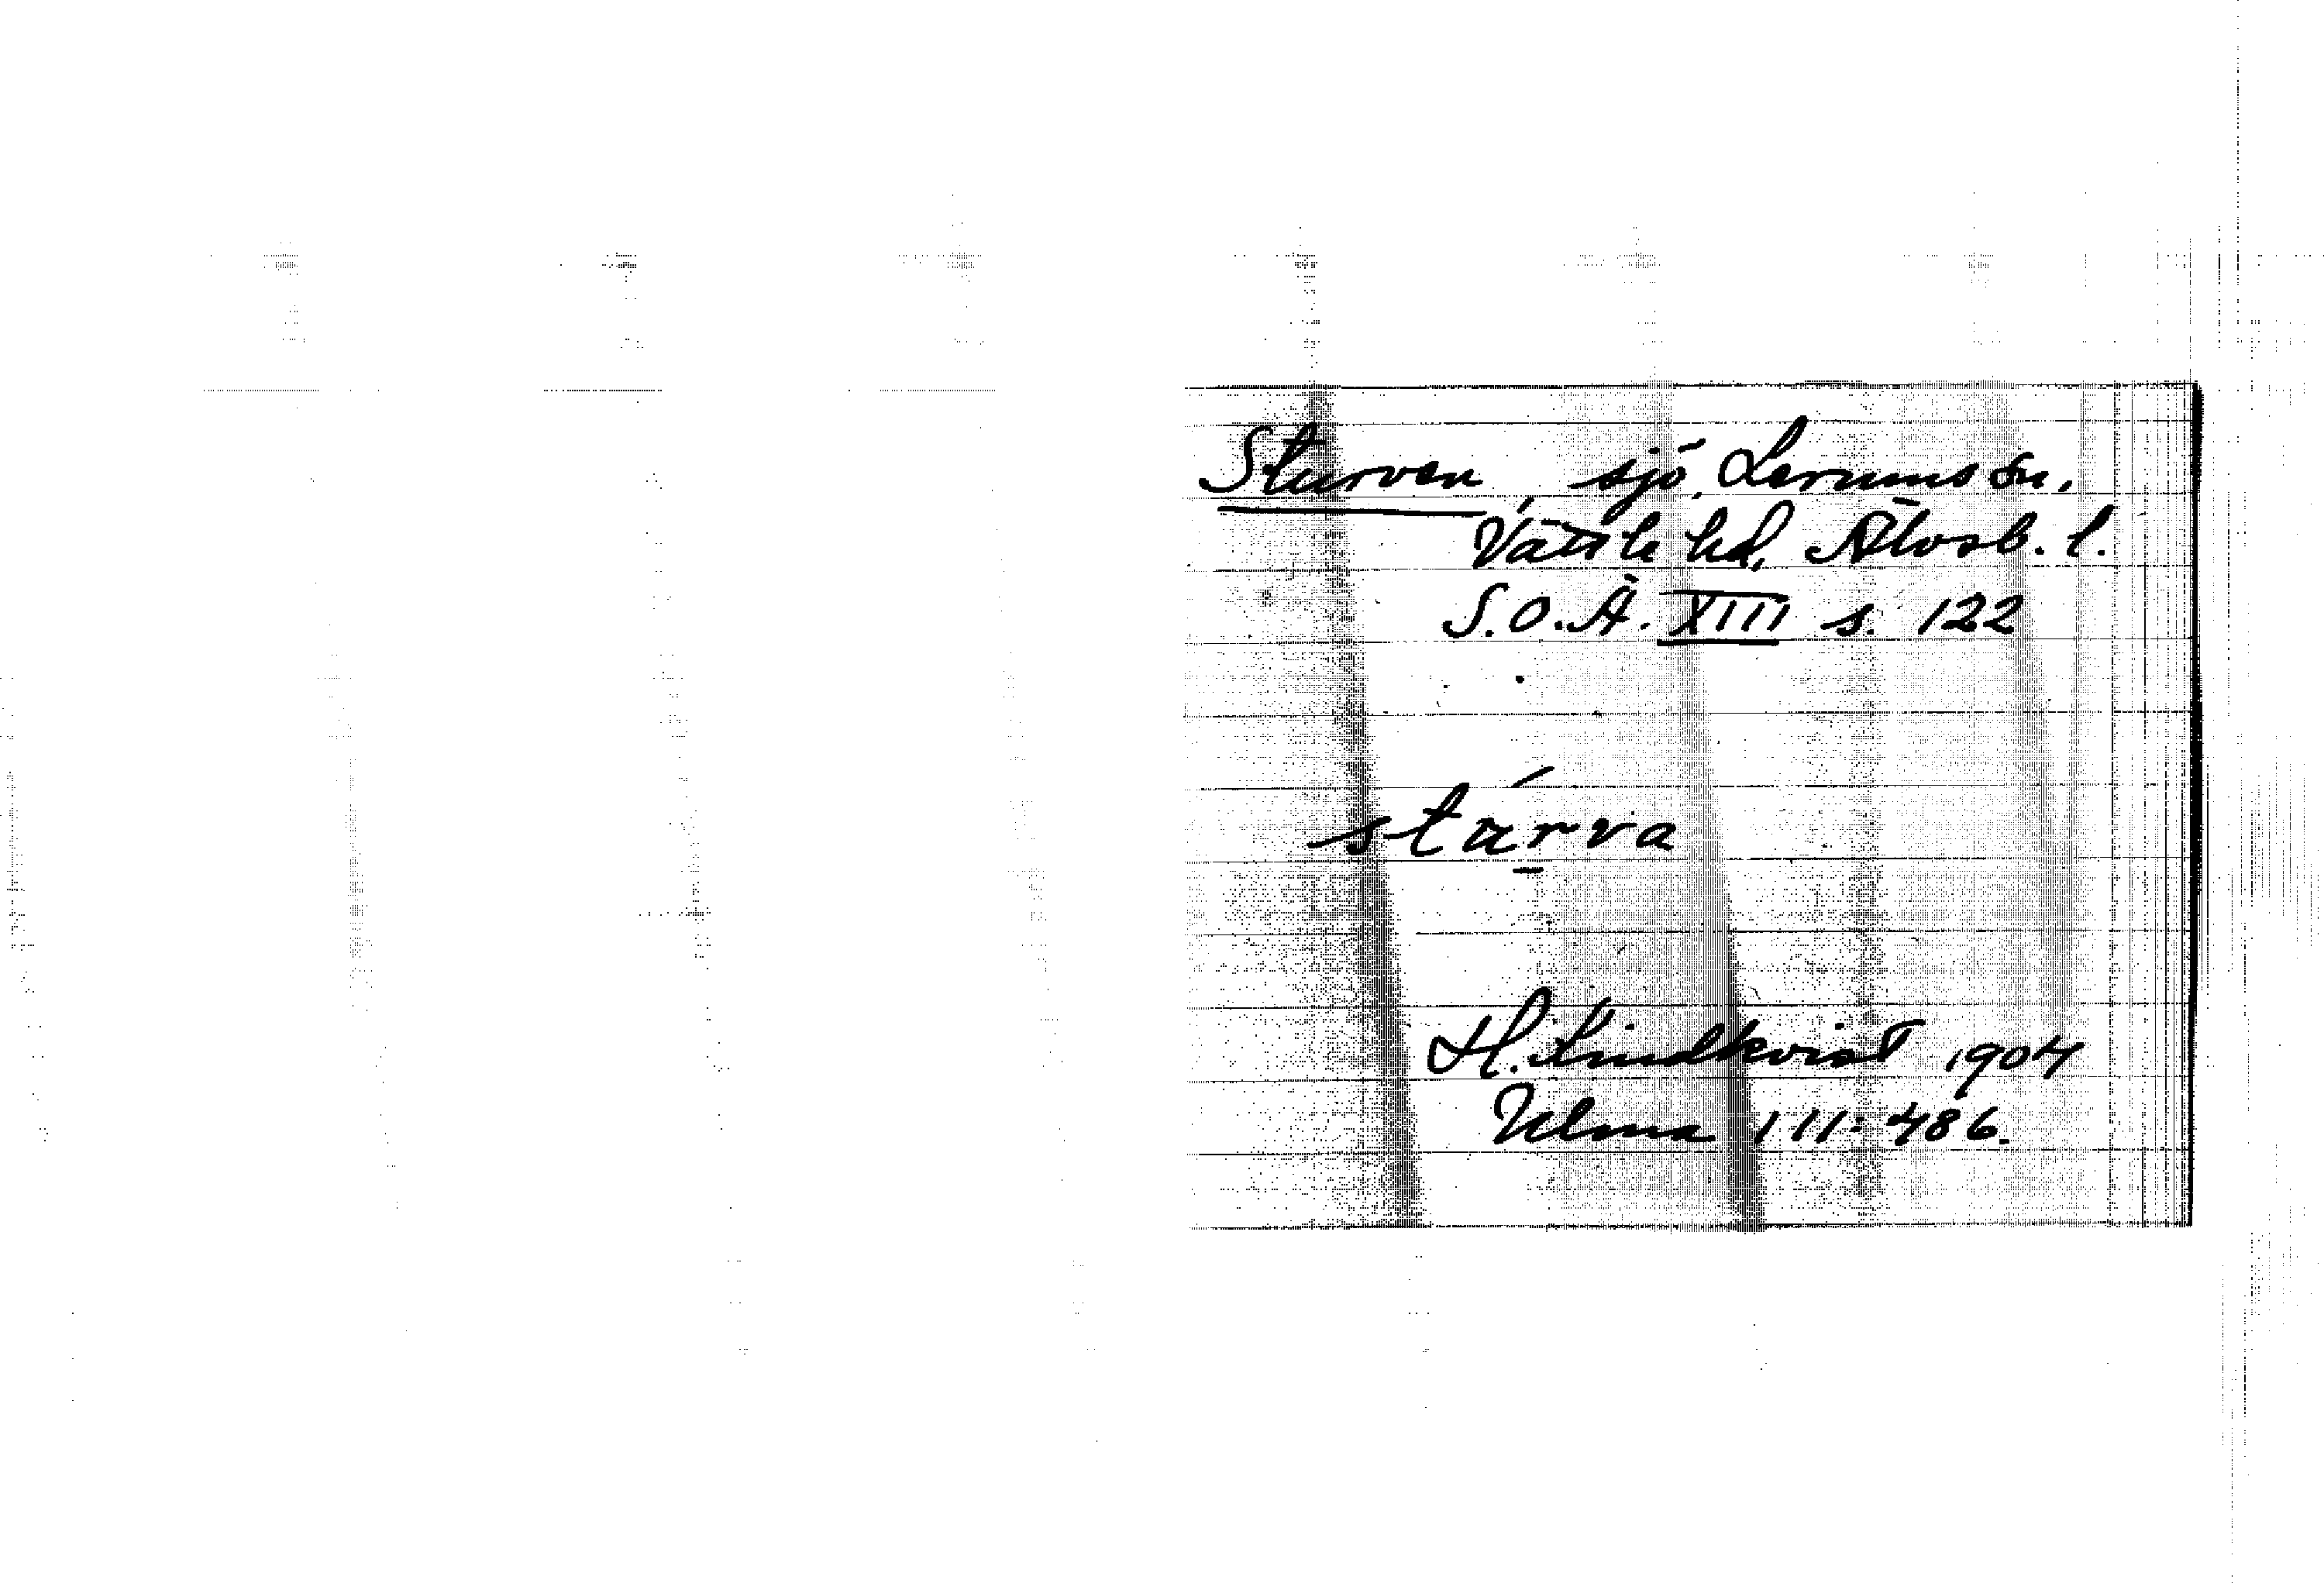 Sturven, sjö, Lerums sn,
Vättle hd, Älvsb. l.
S.O.Ä. XIII s. 122
stu̱rva
H. Lindkvist 1904
Ulma 111:486.